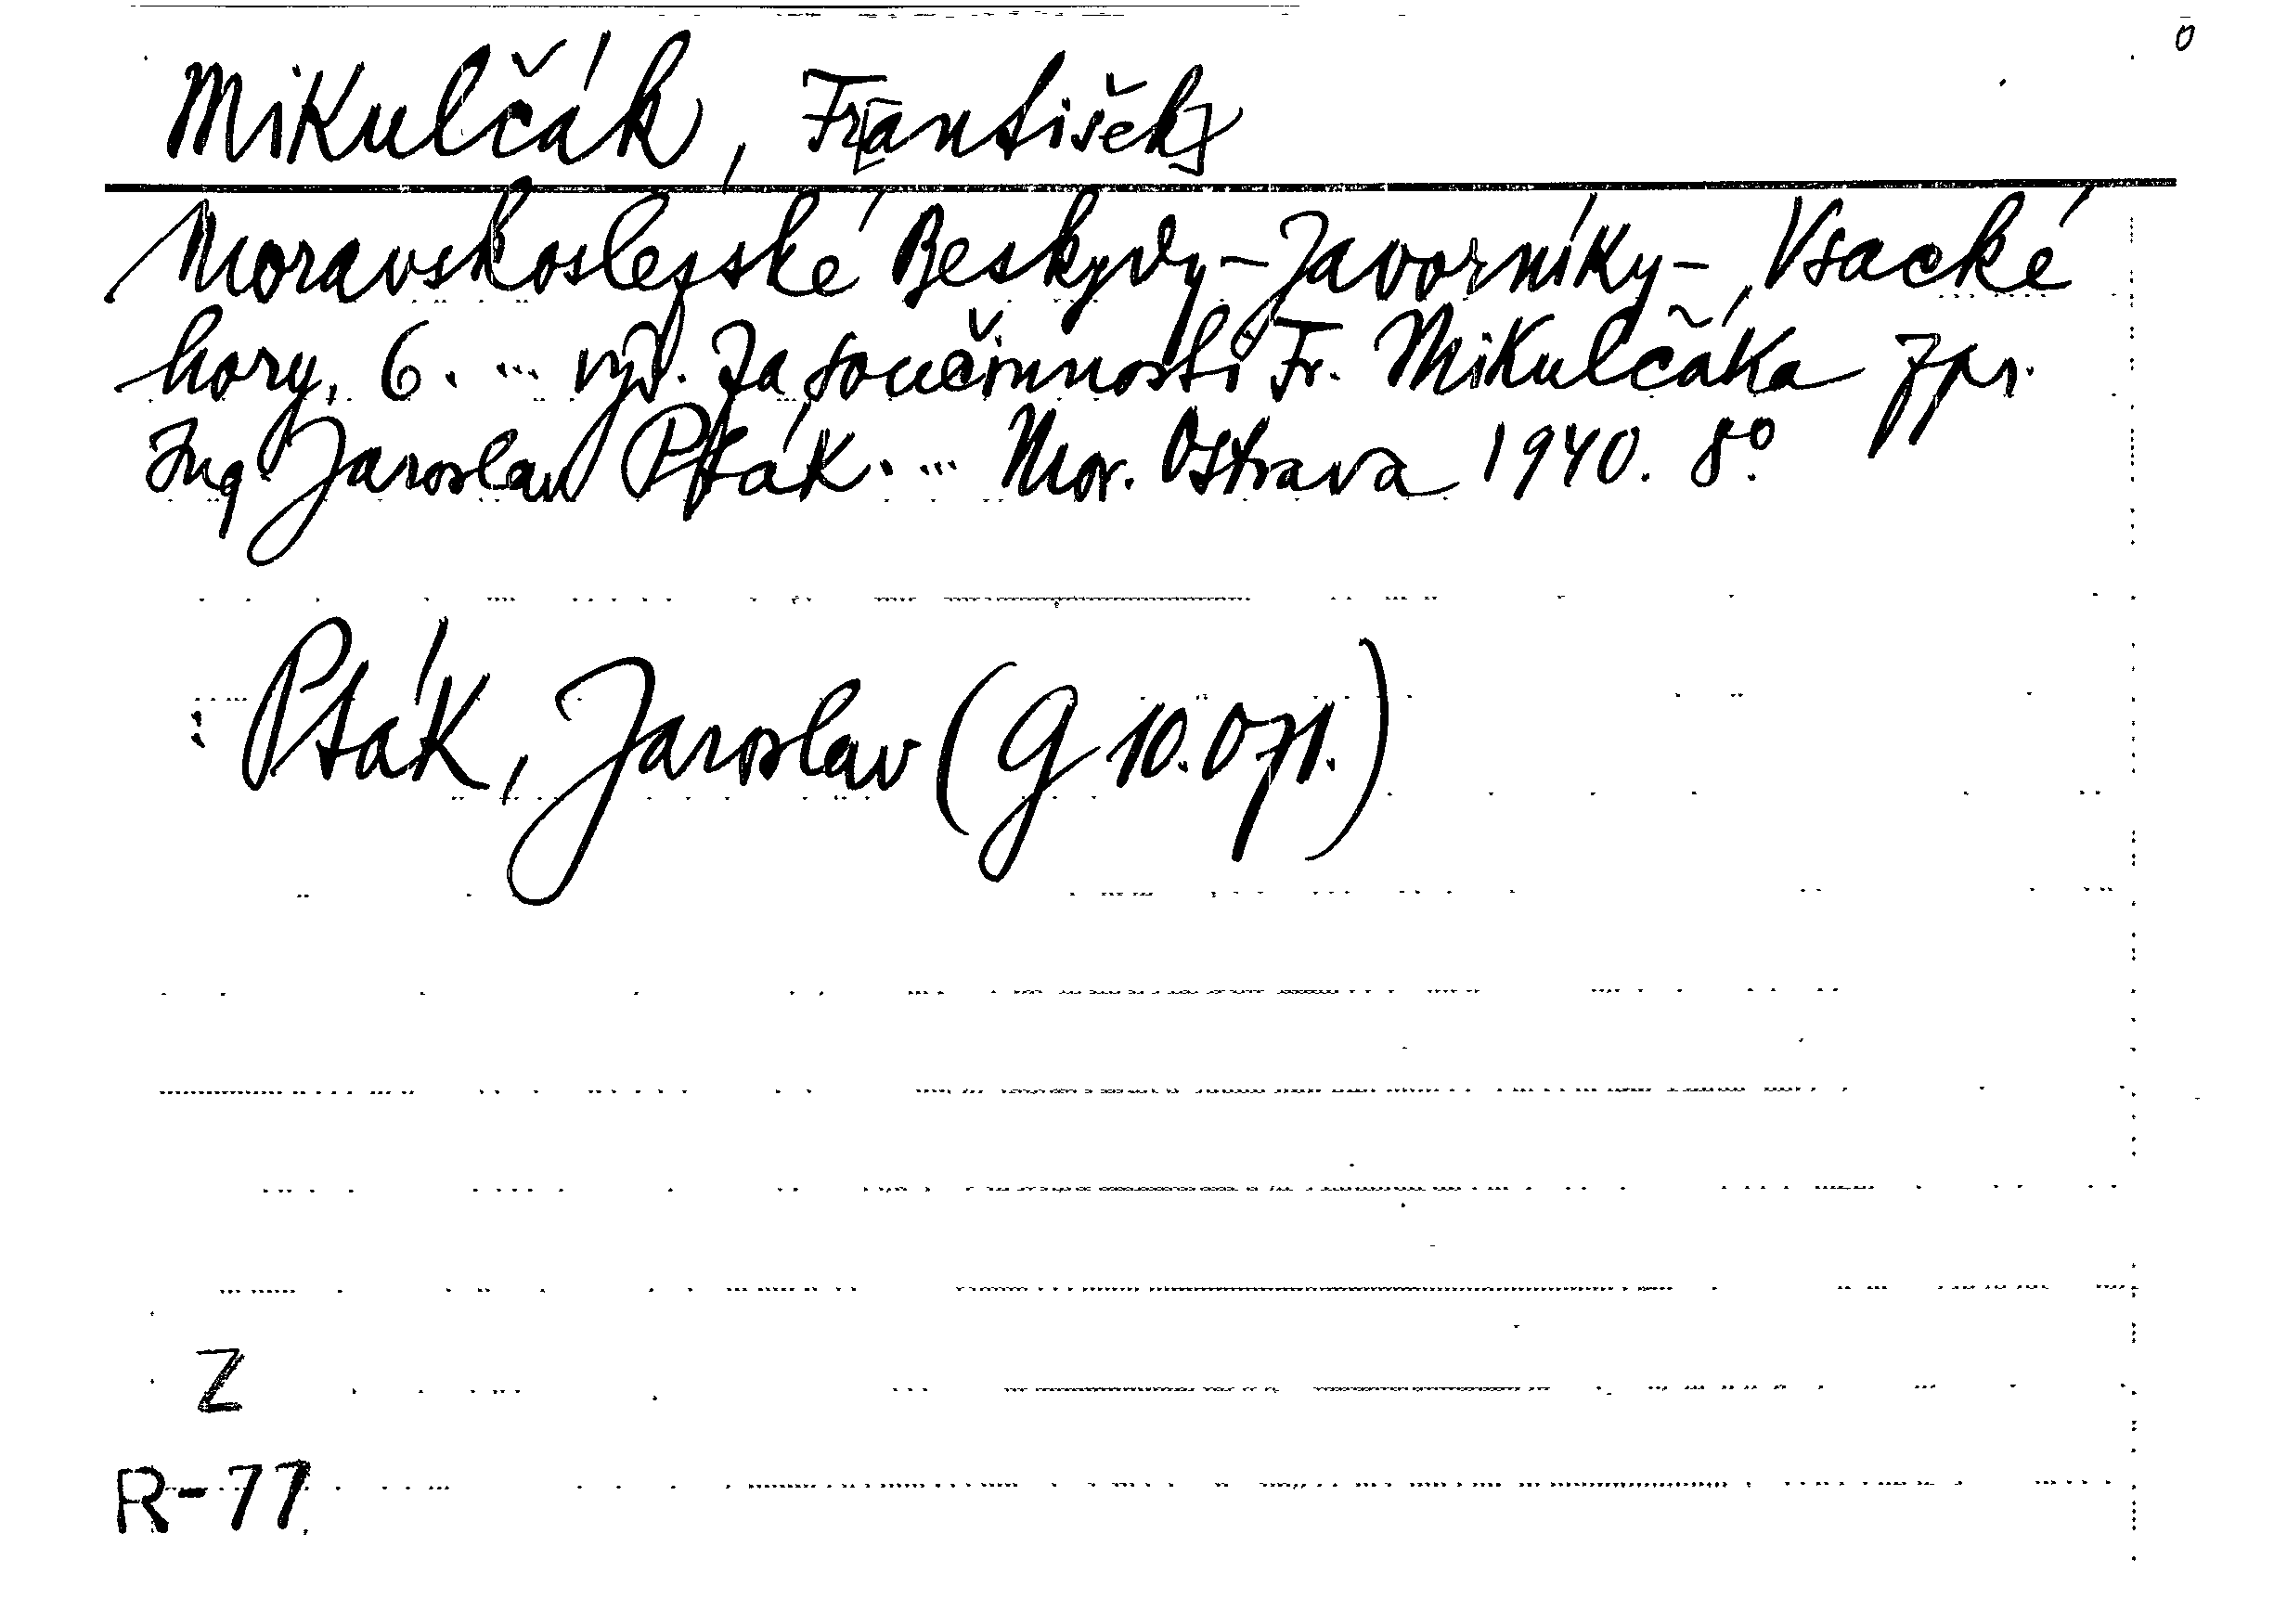 Mikulčák, Fr[antišek]
Moravskoslezské Beskydy - Javorníky - Vsacké
hory. 6. ... vyd. Za součinnosti Fr. Mikulčáka zpr.
Ing. Jaroslav Pták. ... Mor. Ostrava 1940. 8°.
: Pták, Jaroslav (G 10.071.)
Z
R-77